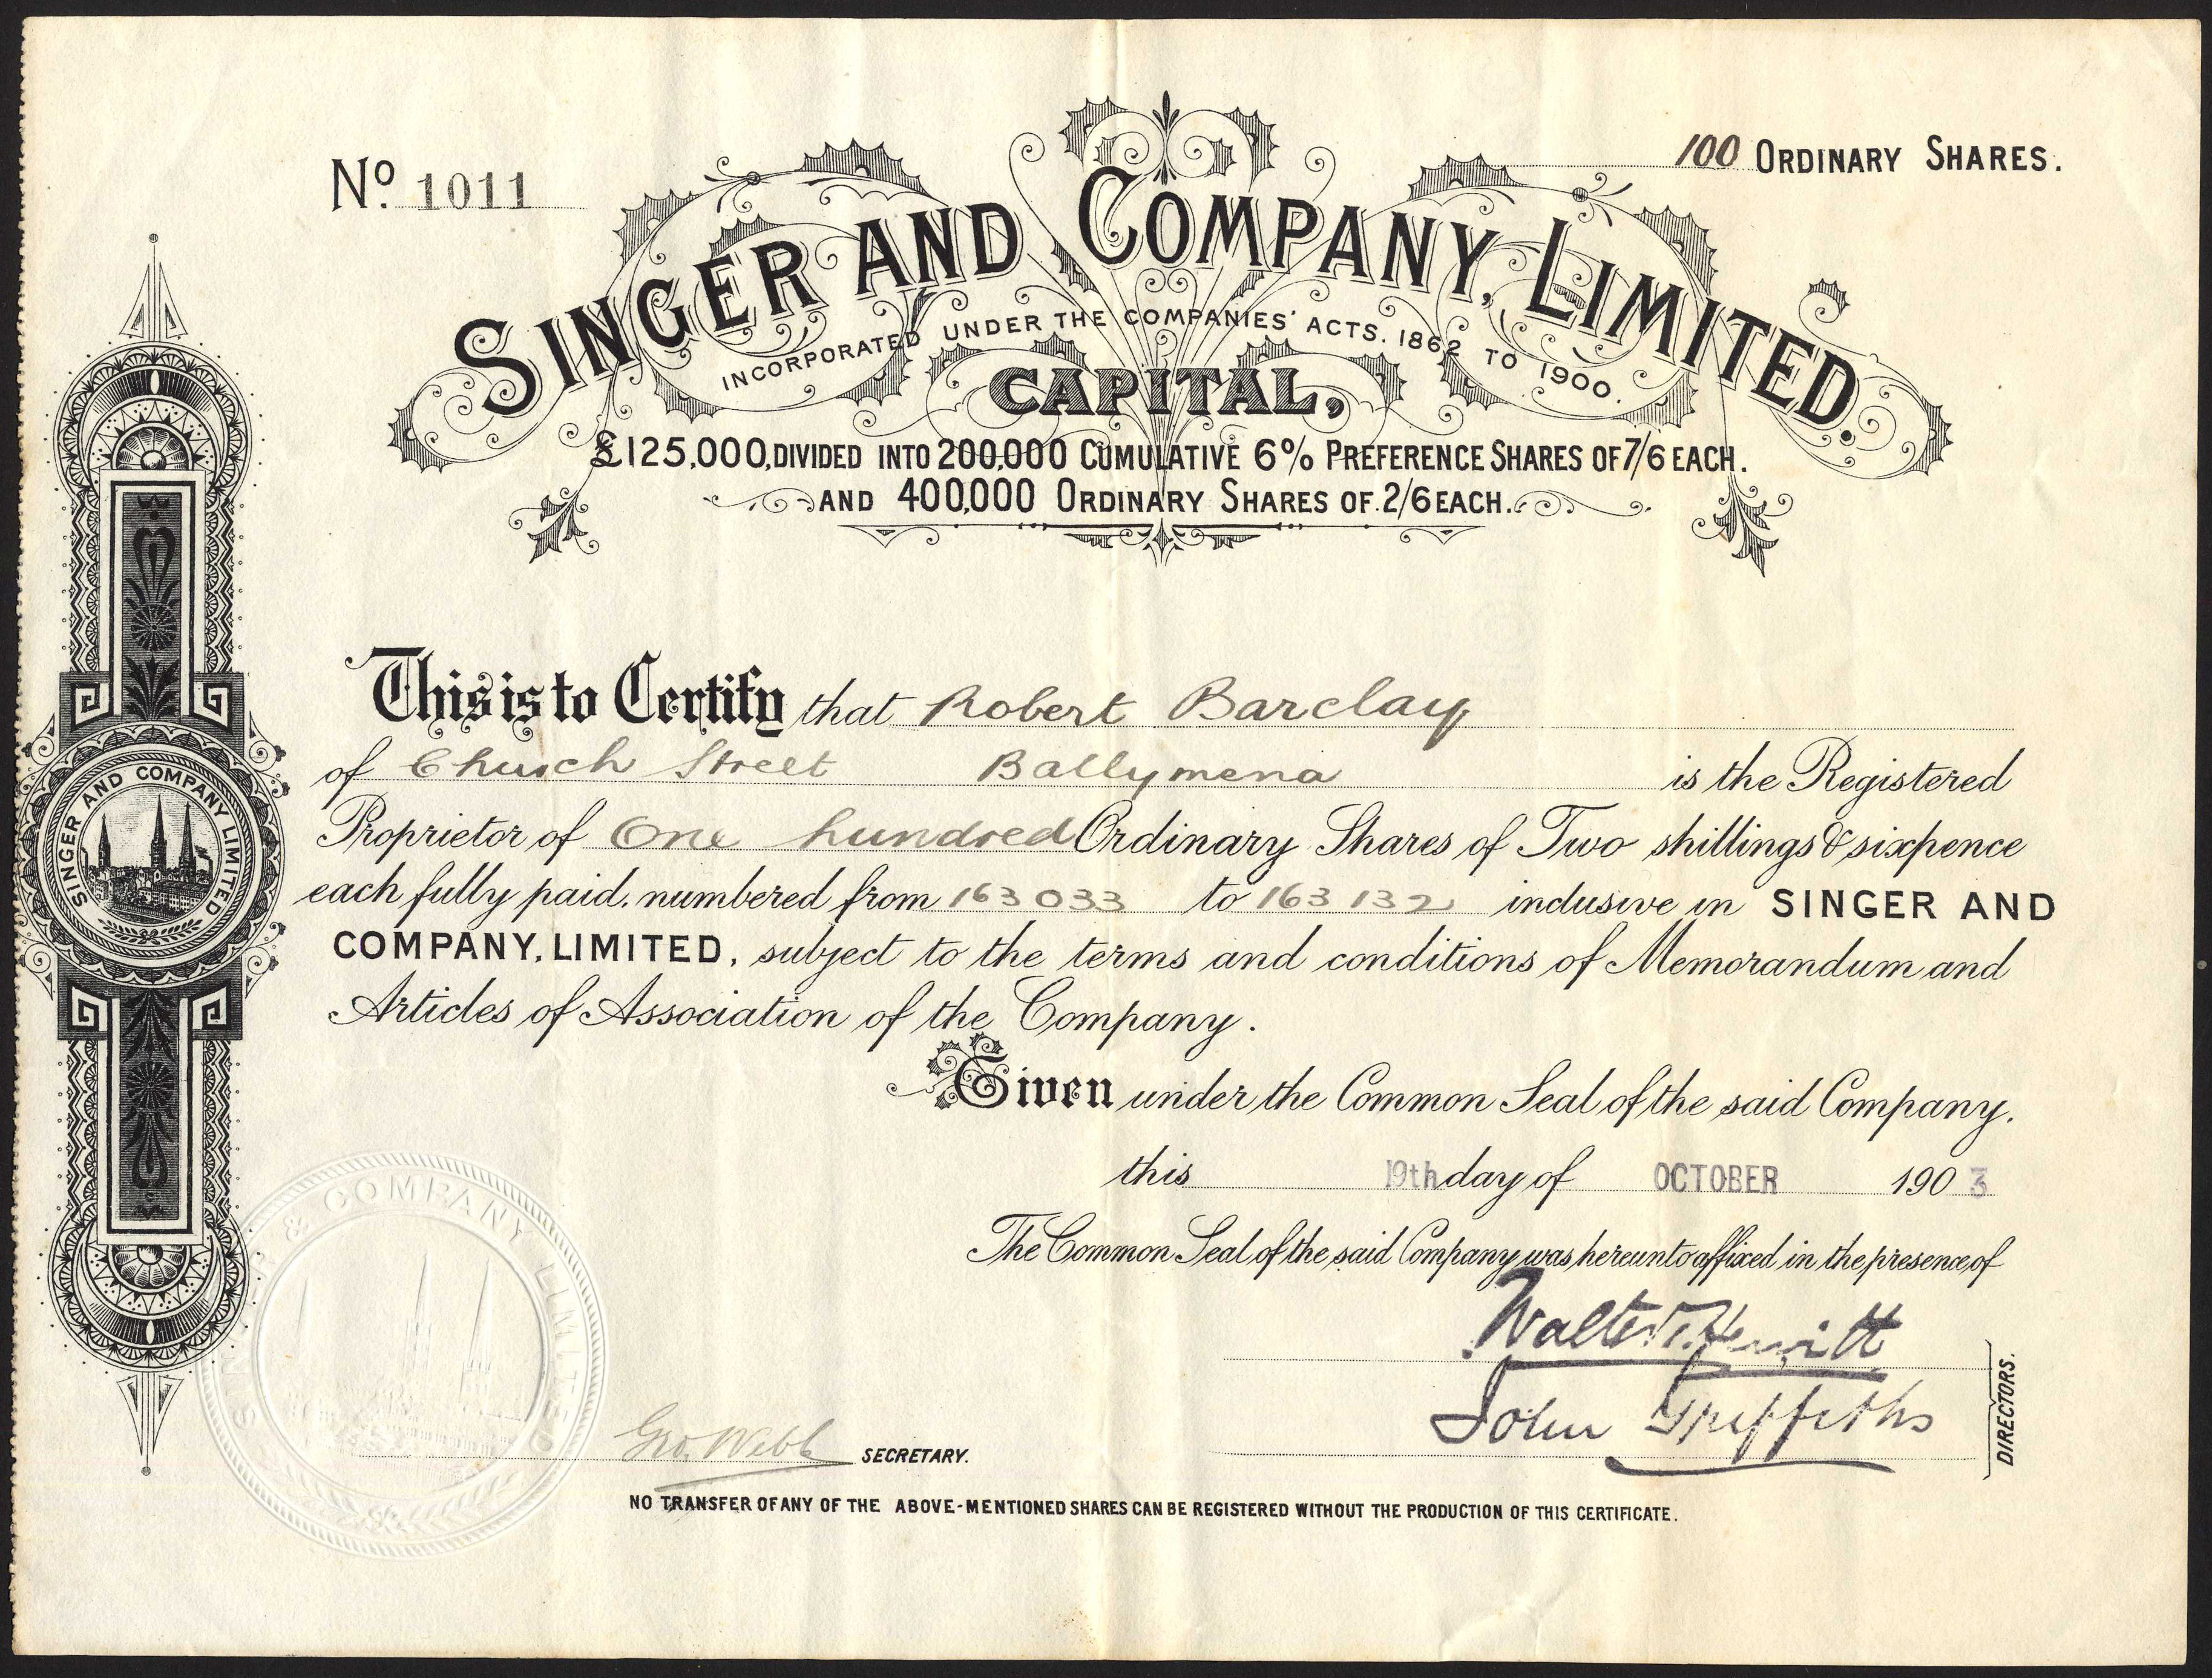 Nº 1011
100 ORDINARY SHARES.
SINGER AND COMPANY, LIMITED.
INCORPORATED UNDER THE COMPANIES' ACTS. 1862 TO 1900.
CAPITAL,
£125,000, DIVIDED INTO 200,000 CUMULATIVE 6% PREFERENCE SHARES OF 7/6 EACH.
AND 400,000 ORDINARY SHARES OF 2/6 EACH.
This is to Certify that Robert Barclay
of Church Street Ballymena is the Registered
Proprietor of One hundred Ordinary Shares of Two shillings & sixpence
each fully paid, numbered from 163033 to 163132 inclusive in SINGER AND
COMPANY, LIMITED, subject to the terms and conditions of Memorandum and
Articles of Association of the Company.
SINGER AND COMPANY LIMITED
Given under the Common Seal of the said Company,
this 19th day of OCTOBER 1903
The Common Seal of the said Company was hereunto affixed in the presence of
Walter T. Hewitt
John Griffiths
DIRECTORS.
SINGER & COMPANY LIMITED
Geo. Webb SECRETARY.
NO TRANSFER OF ANY OF THE ABOVE-MENTIONED SHARES CAN BE REGISTERED WITHOUT THE PRODUCTION OF THIS CERTIFICATE.